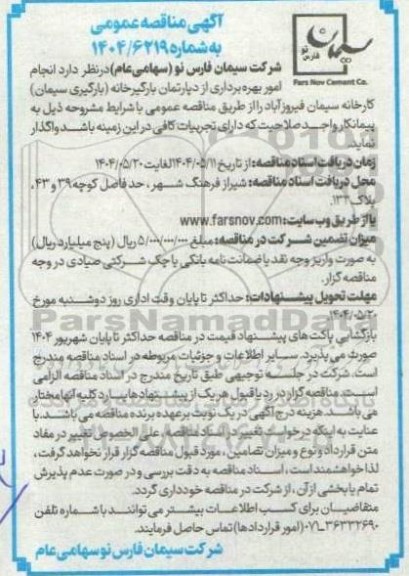 آگهی مناقصه عمومی
به شماره ۱۴۰۴/۶۲۱۹
سیمان
فارس نو
Pars Nov Cement Co.
شرکت سیمان فارس نو (سهامی‌عام) درنظر دارد انجام
امور بهره برداری از دپارتمان بارگیرخانه (بارگیری سیمان)
کارخانه سیمان فیروزآباد را از طریق مناقصه عمومی با شرایط مشروحه ذیل به
پیمانکار واجد صلاحیت که دارای تجربیات کافی در این زمینه باشد واگذار
نماید.
زمان دریافت اسناد مناقصه: از تاریخ ۱۴۰۴/۰۵/۱۱ لغایت ۱۴۰۴/۰۵/۲۰
محل دریافت اسناد مناقصه: شیراز فرهنگ شهر، حد فاصل کوچه ۳۹ و ۴۳،
پلاک ۱۳۲
یا از طریق وب سایت: www.farsnov.com
میزان تضمین شرکت در مناقصه: مبلغ ۵/۰۰۰/۰۰۰/۰۰۰ ریال (پنج میلیارد ریال)
به صورت واریز وجه نقد یا ضمانت نامه بانکی یا چک شرکتی صیادی در وجه
مناقصه گزار.
مهلت تحویل پیشنهادات: حداکثر تا پایان وقت اداری روز دوشنبه مورخ
۱۴۰۴/۰۵/۲۰
بازگشایی پاکت های پیشنهاد قیمت در مناقصه حداکثر تا پایان شهریور ۱۴۰۴
صورت می پذیرد. سایر اطلاعات و جزئیات مربوطه در اسناد مناقصه مندرج
است. شرکت در جلسه توجیهی طبق تاریخ مندرج در اسناد مناقصه الزامی
است. مناقصه گزار در رد یا قبول هر یک از پیشنهادها یا رد کلیه آنها مختار
می باشد. هزینه درج آگهی در یک نوبت برعهده برنده مناقصه می باشد. با
عنایت به اینکه درخواست تغییر در اسناد مناقصه علی الخصوص تغییر در مفاد
متن قرارداد و نوع و میزان تضامین، مورد قبول مناقصه گزار قرار نخواهد گرفت،
لذا خواهشمند است، اسناد مناقصه به دقت بررسی و در صورت عدم پذیرش
تمام یا بخشی از آن، از شرکت در مناقصه خودداری گردد.
متقاضیان برای کسب اطلاعات بیشتر می توانند با شماره تلفن
۰۷۱-۳۶۳۳۲۶۹۰ (امور قراردادها) تماس حاصل فرمایند.
شرکت سیمان فارس نو سهامی عام
ParsNamadData